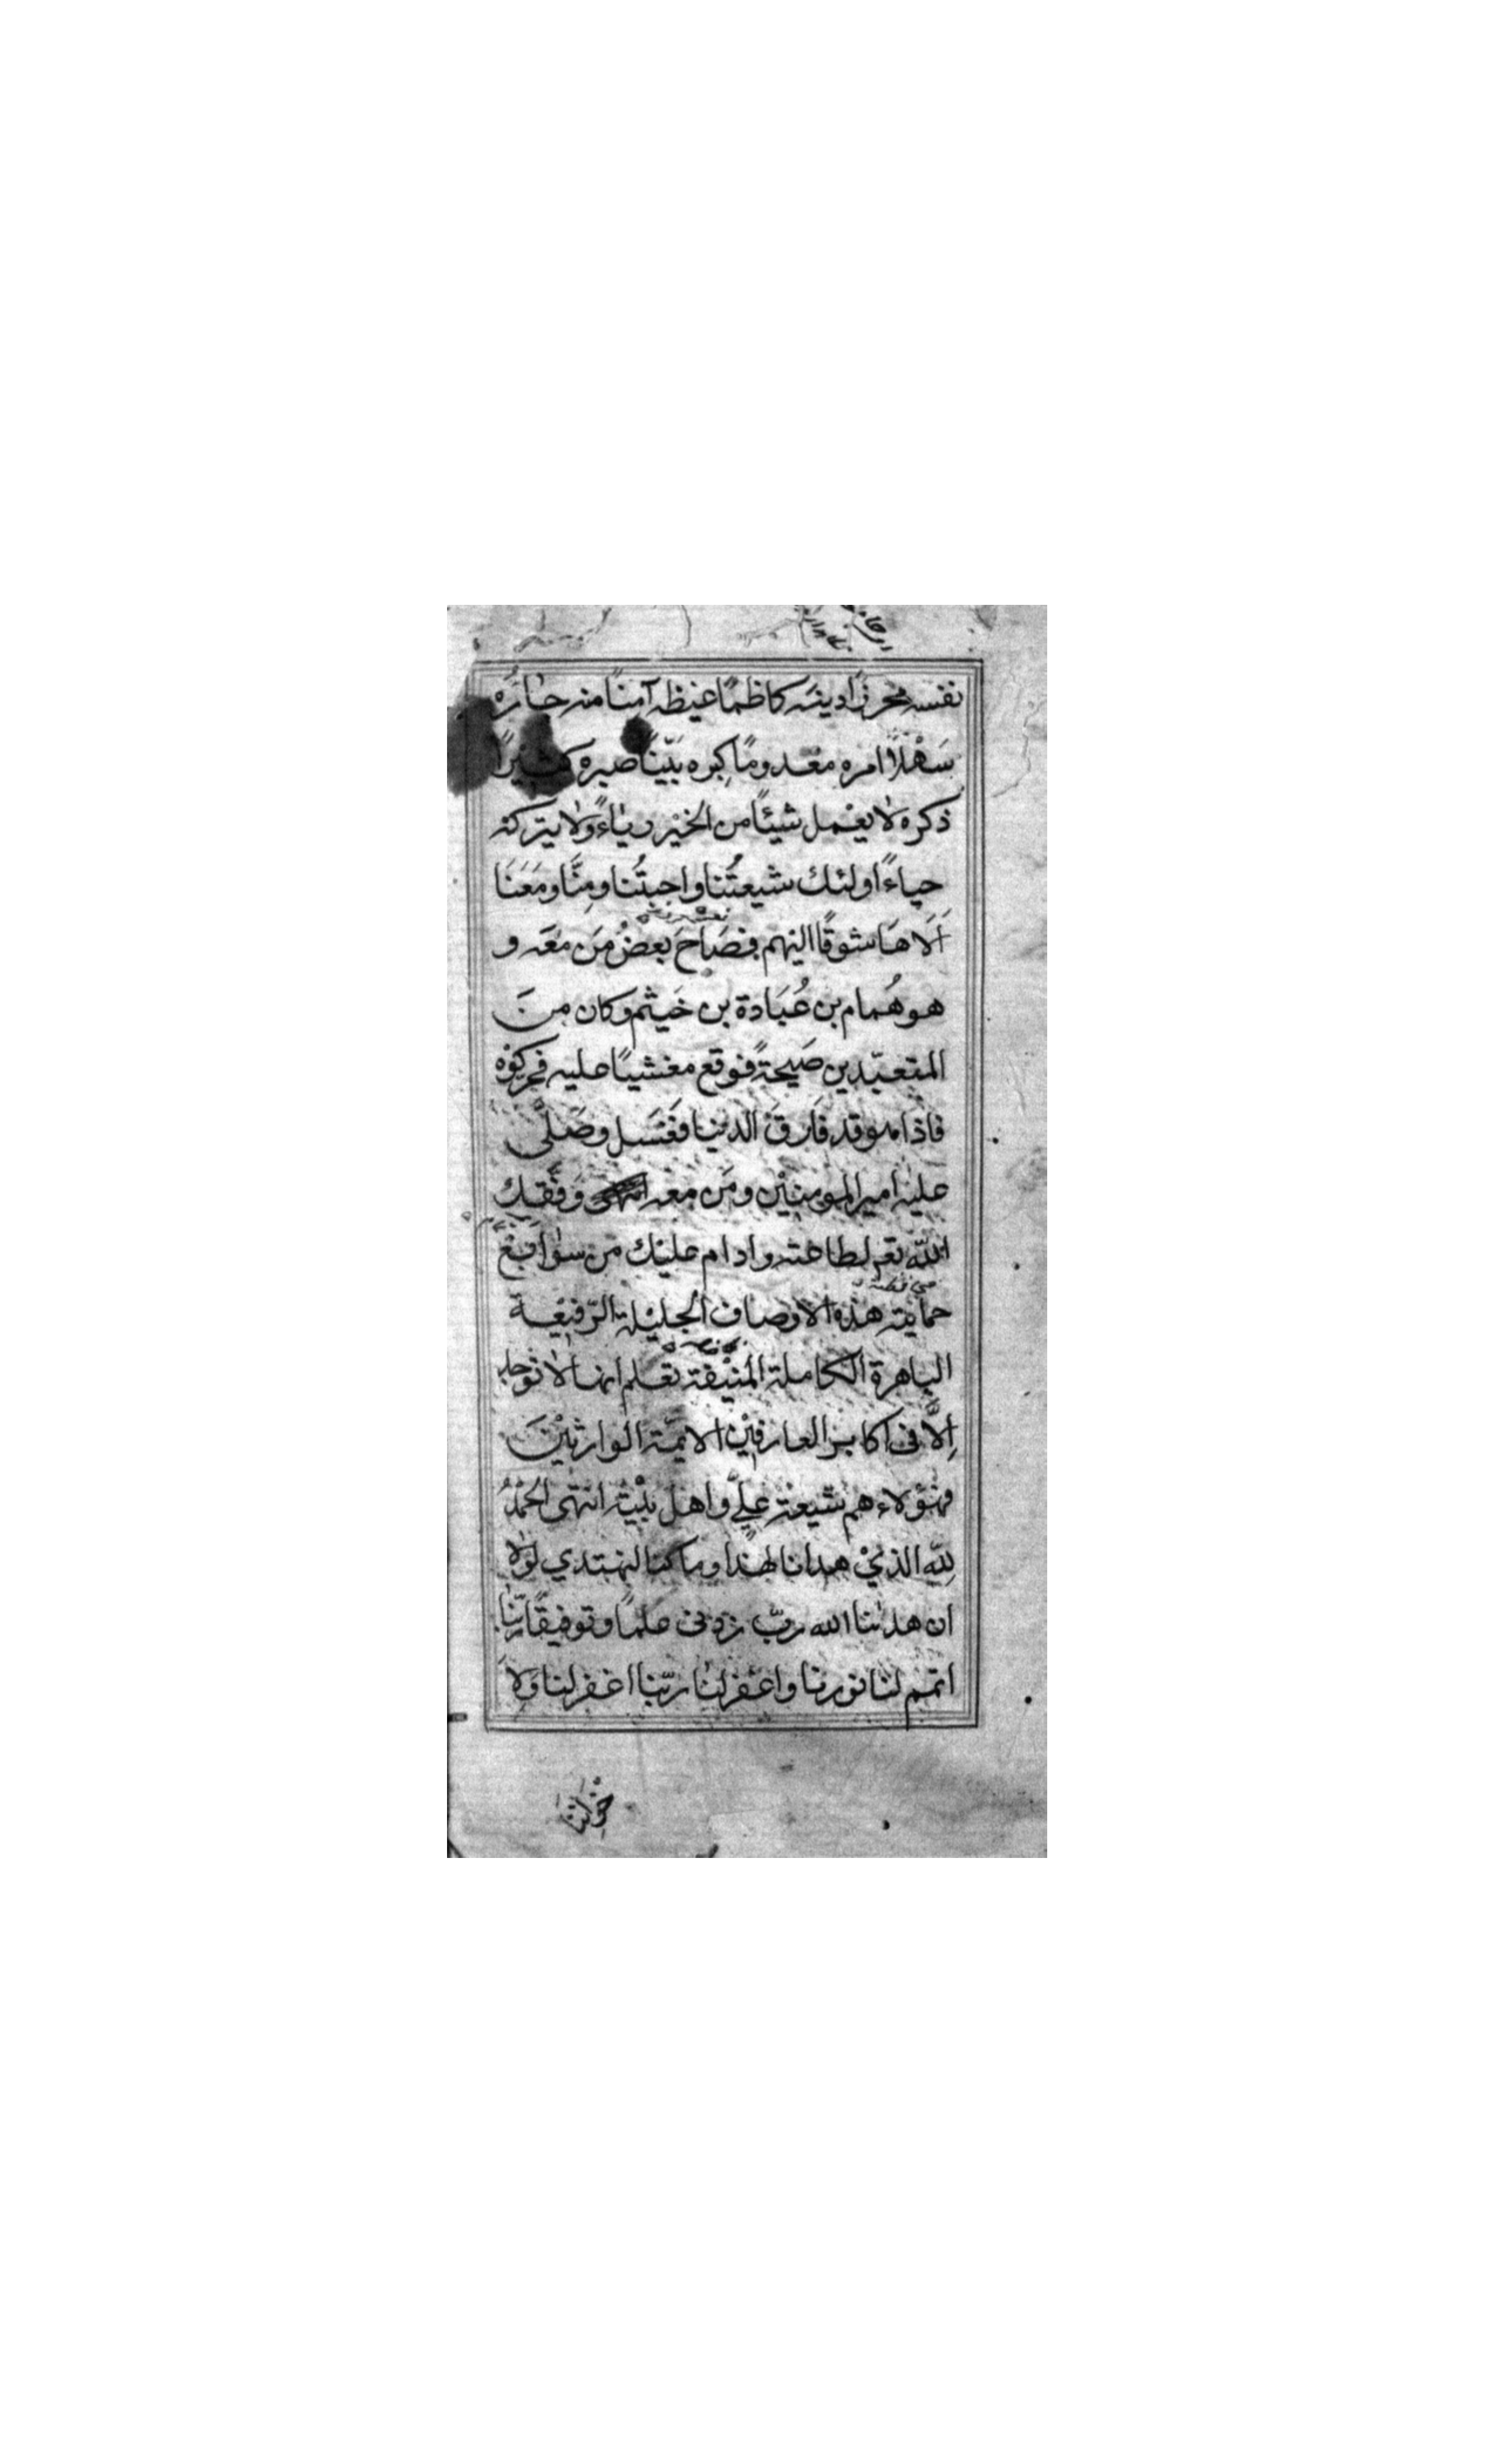 نفسه محرزًا دينه كاظمًا غيظه آمنًا منه جاره
سَهْلًا امره معدومًا كِبره بَيّنًا صبره كثيرًا
ذكره لا يعْمل شيئًا من الخيْر رياءً ولا يتركه
حياءً اولئك شيعتُنا واحبتُنا ومِنَّا ومَعَنَا
اَلَا هَا شوقًا اليهم فصَاحَ بعضُ مَن معَه و
هو هُمام بن عُبَادة بن خَيثم وكان مِنَ
المتعبّدين صَيحةً فوقع مغشيًا عليه فحركوْه
فاذا هو قد فَارقَ الدنيا فغَسَل وصَلَّى
عليه امير المومنيْن ومَن معه وَفّقك
اللّه تعر لطاعته وادام عليْك مِن سوابغ
حمايته هذه الاوصاف الجليْلة الرّفيْعة
الباهرة الكاملة المنيْفة تعلم انها لا توجد
اِلَّا فى اكابر العارفيْن الائمّة الوارثيْنَ
فهؤلاء هم شيعة عليّ واهل بيْته انتهى الحمْدُ
لِلّه الذيْ هدانا لهٰذا وما كنا لنهتدي لولا
ان هدٰىنا الله ربّ زدنى علمًا وتوفيقًا ربّنا
اتمم لنا نورنا واغفر لنا ربّنا اغفر لنا وَلِا
خْوانِنا